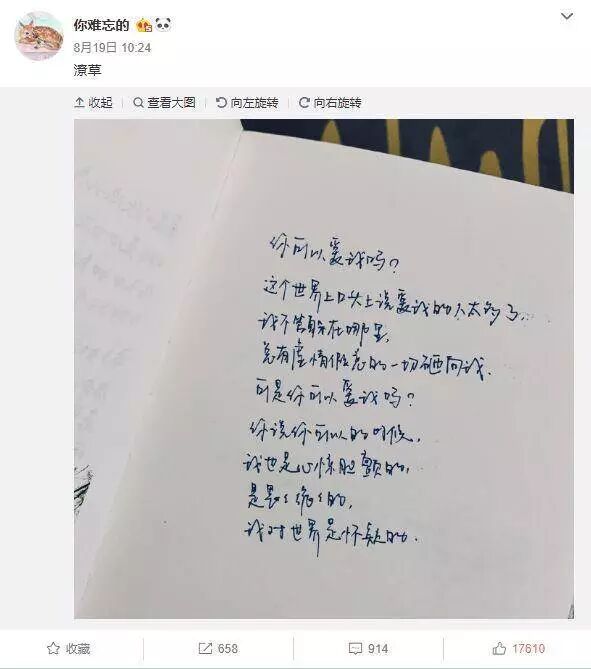 你难忘的
8月19日 10:24
潦草
收起 查看大图 向左旋转 向右旋转
你可以爱我吗?
这个世界上口头上说爱我的人太多了,
我不管躲在哪里,
总有虚情假意的一切砸向我.
可是你可以爱我吗?
你说你可以的时候,
我也是心惊胆颤的,
是畏々缩々的,
我对世界是怀疑的.
收藏 658 914 17610